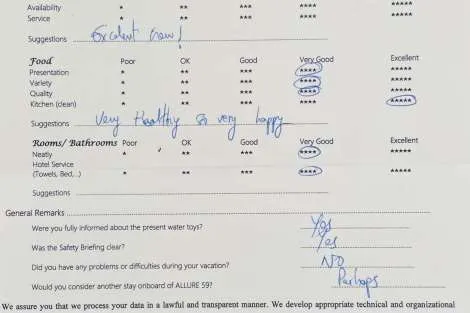 Availability * ** *** **** *****
Service * ** *** **** *****
Suggestions Excelent crew!
Food Poor OK Good Very Good Excellent
Presentation * ** *** **** *****
Variety * ** *** **** *****
Quality * ** *** **** *****
Kitchen (clean) * ** *** **** *****
Suggestions Very Healthy so very happy
Rooms/ Bathrooms Poor OK Good Very Good Excellent
Neatly * ** *** **** *****
Hotel Service
(Towels, Bed,..) * ** *** **** *****
Suggestions
General Remarks
Were you fully informed about the present water toys? Yes
Was the Safety Briefing clear? Yes
Did you have any problems or difficulties during your vacation? NO
Would you consider another stay onboard of ALLURE 59? Perhaps
We assure you that we process your data in a lawful and transparent manner. We develop appropriate technical and organizational